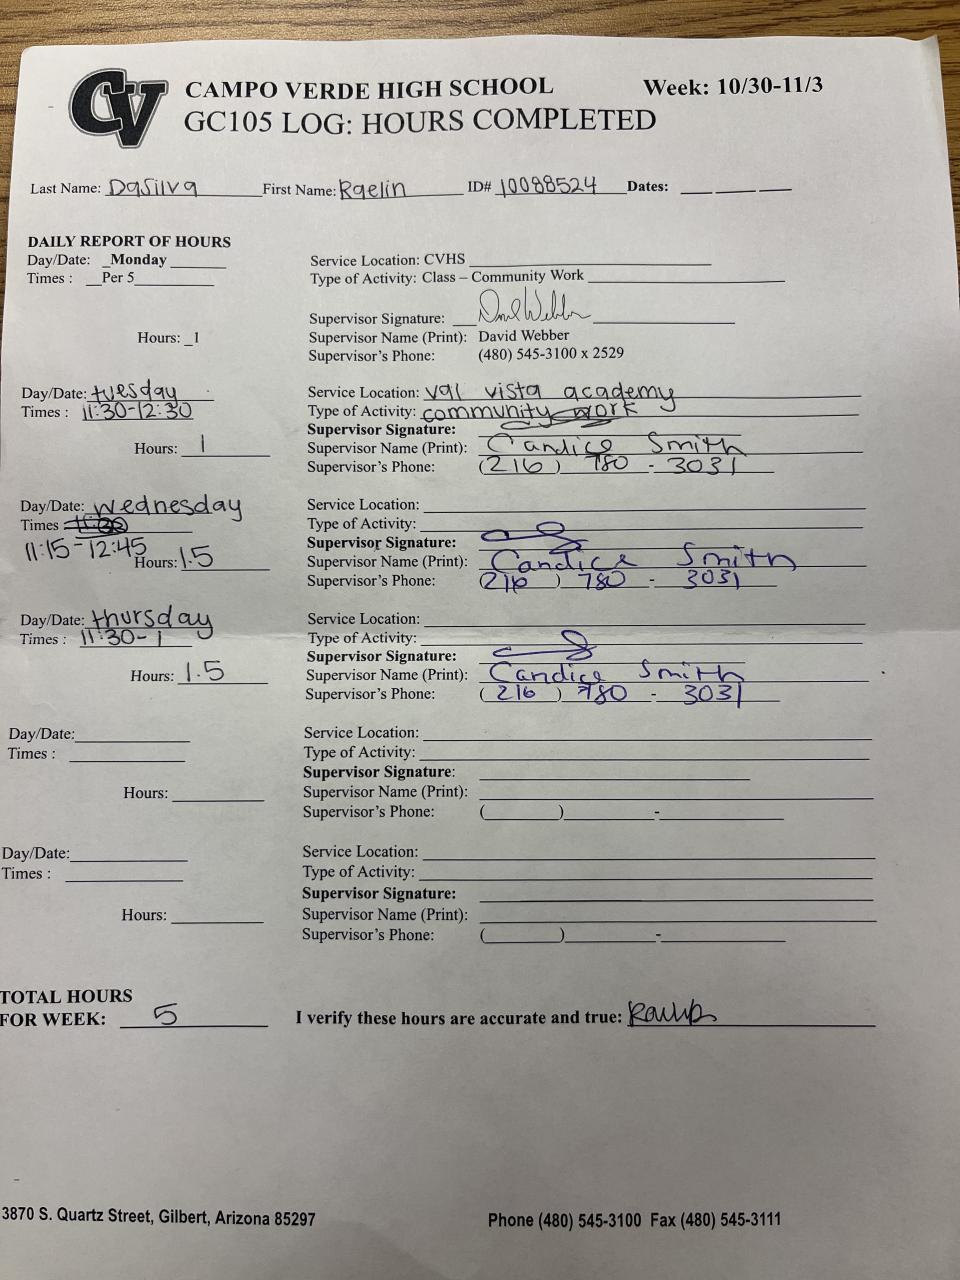 CV
CAMPO VERDE HIGH SCHOOL Week: 10/30-11/3
GC105 LOG: HOURS COMPLETED
Last Name: Dasilva First Name: Raelin ID# 10088524 Dates: ___ ___ ___
DAILY REPORT OF HOURS
Day/Date: _Monday______ Service Location: CVHS
Times : __Per 5________ Type of Activity: Class – Community Work
Supervisor Signature: David Webber
Hours: _1 Supervisor Name (Print): David Webber
Supervisor's Phone: (480) 545-3100 x 2529
Day/Date: tuesday Service Location: val vista academy
Times : 11:30-12:30 Type of Activity: community work
Supervisor Signature:
Hours: 1 Supervisor Name (Print): Candice Smith
Supervisor's Phone: (216) 780 - 3031
Day/Date: wednesday Service Location:
Times Type of Activity:
11:15-12:45 Supervisor Signature:
Hours: 1.5 Supervisor Name (Print): Candice Smith
Supervisor's Phone: (216) 780 - 3031
Day/Date: thursday Service Location:
Times : 11:30-1 Type of Activity:
Supervisor Signature:
Hours: 1.5 Supervisor Name (Print): Candice Smith
Supervisor's Phone: (216) 780 - 3031
Day/Date: Service Location:
Times : Type of Activity:
Supervisor Signature:
Hours: Supervisor Name (Print):
Supervisor's Phone: ( ) -
Day/Date: Service Location:
Times : Type of Activity:
Supervisor Signature:
Hours: Supervisor Name (Print):
Supervisor's Phone: ( ) -
TOTAL HOURS
FOR WEEK: 5 I verify these hours are accurate and true:
3870 S. Quartz Street, Gilbert, Arizona 85297 Phone (480) 545-3100 Fax (480) 545-3111